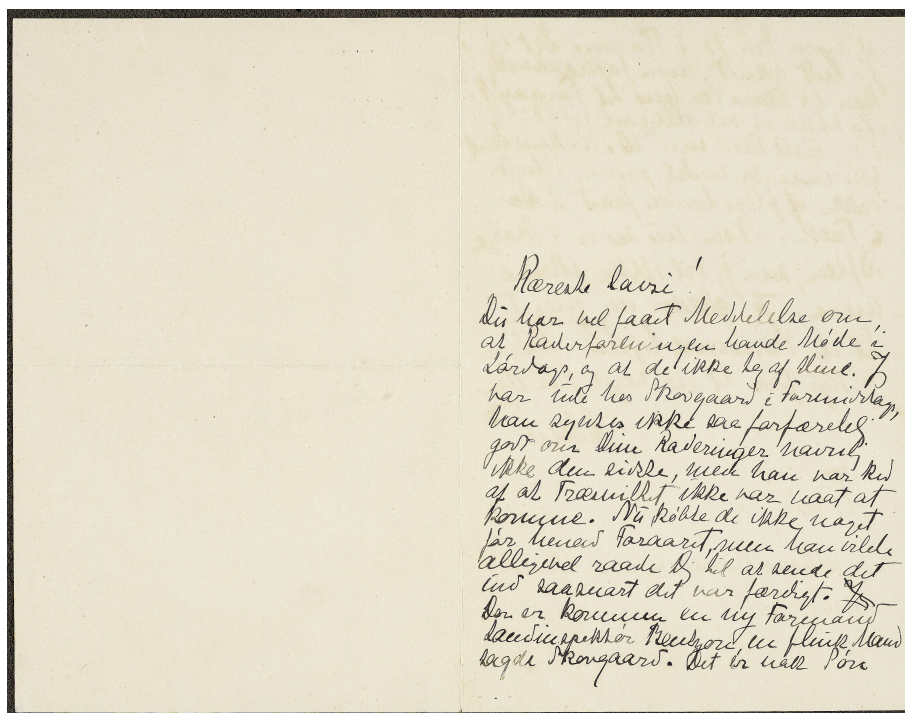 Kæreste Lavsi!
Du har vel faaet Meddelelse om,
at Raderforeningen havde Møde i
Lørdags, og at de ikke tog af Dine. J
var ude hos Skovgaard i Formiddags,
han syntes ikke saa forfærdelig
godt om Dine Raderinger navnlig
ikke den sidste, men han var ked
af at Træsnittet ikke var naaet at
komme. Nu købte de ikke noget
før henad Foraaret, men han vilde
alligevel raade Dig til at sende det
ind saasnart det var færdigt.
Der er kommen en ny Formand
Landinspektør Bentzon, en flink Mand
sagde Skovgaard. Det er nok Søn